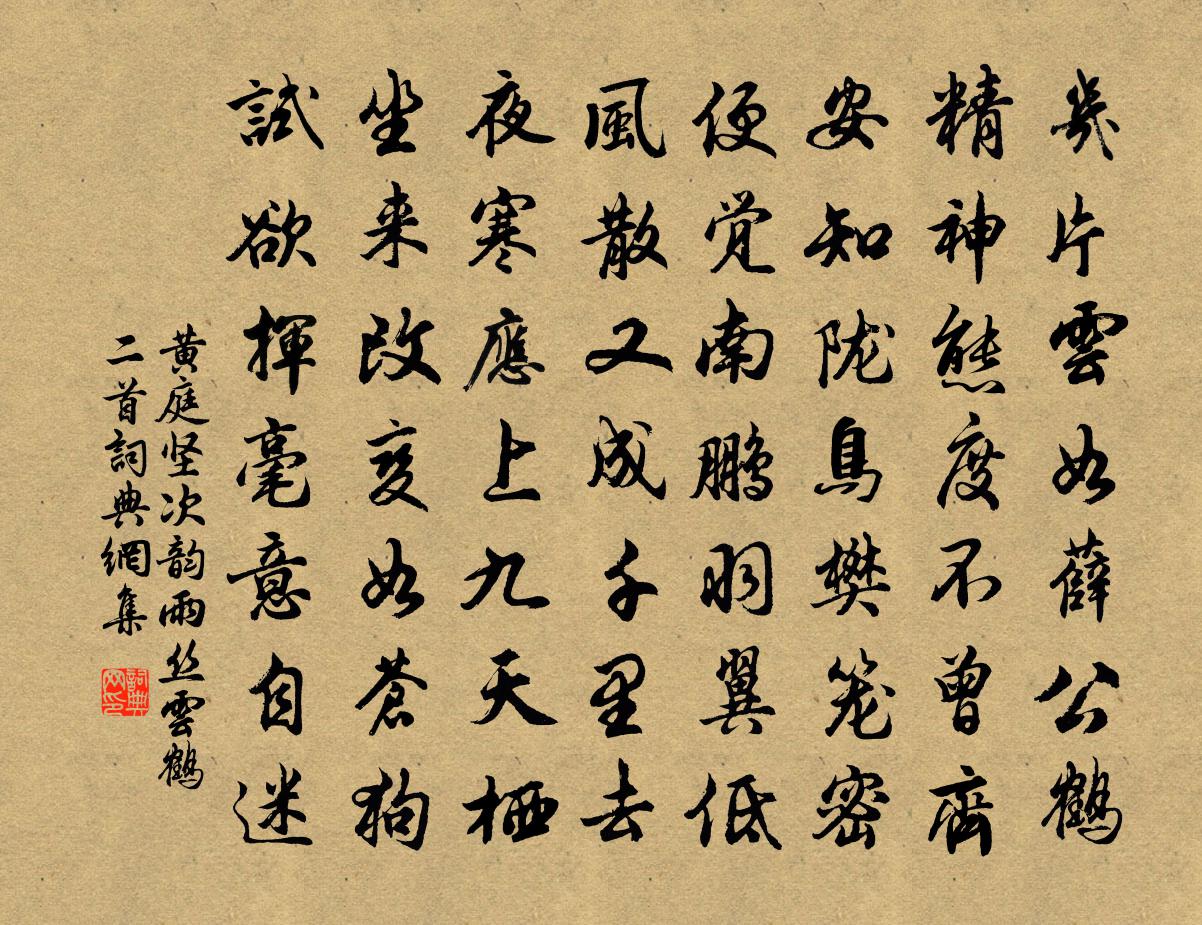 幾片雲如薛公鶴
精神態度不曾齊
安知陇鳥樊笼密
便覚南鹏羽翼低
風散又成千里去
夜寒應上九天栖
坐来改变如蒼狗
試欲揮毫意自迷
黄庭坚次韵雨丝雲鹤
二首詞典網集
詞典
网印